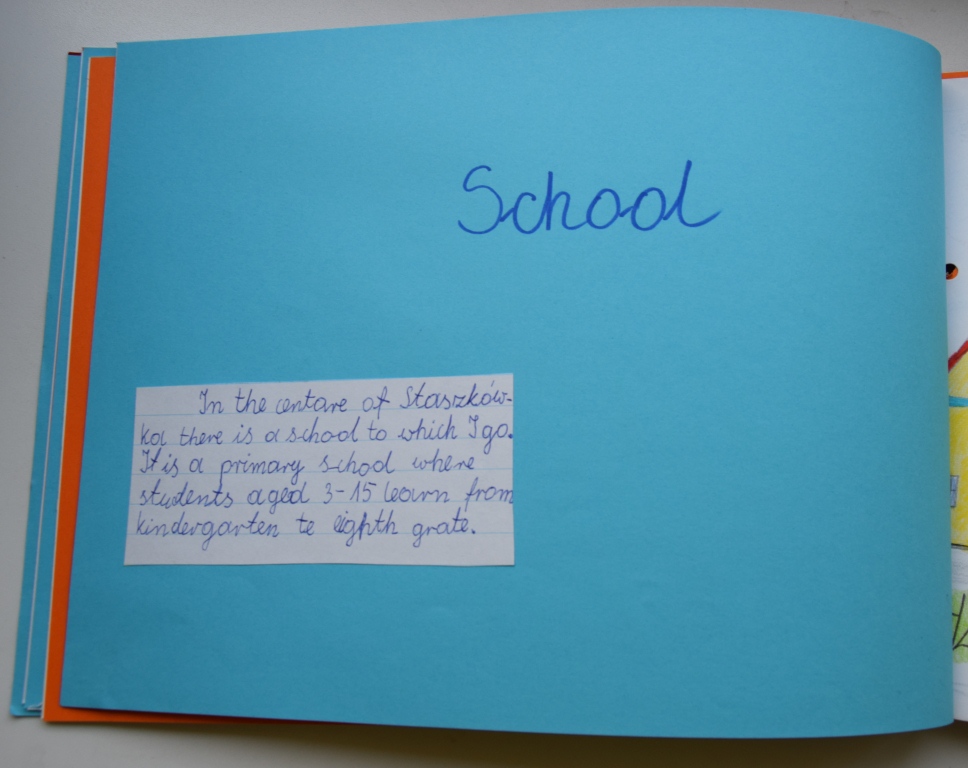 School
In the centare of Staszków-
ka there is a school to which I go.
It is a primary school where
students aged 3-15 learn from
kindergarten te eighth grate.